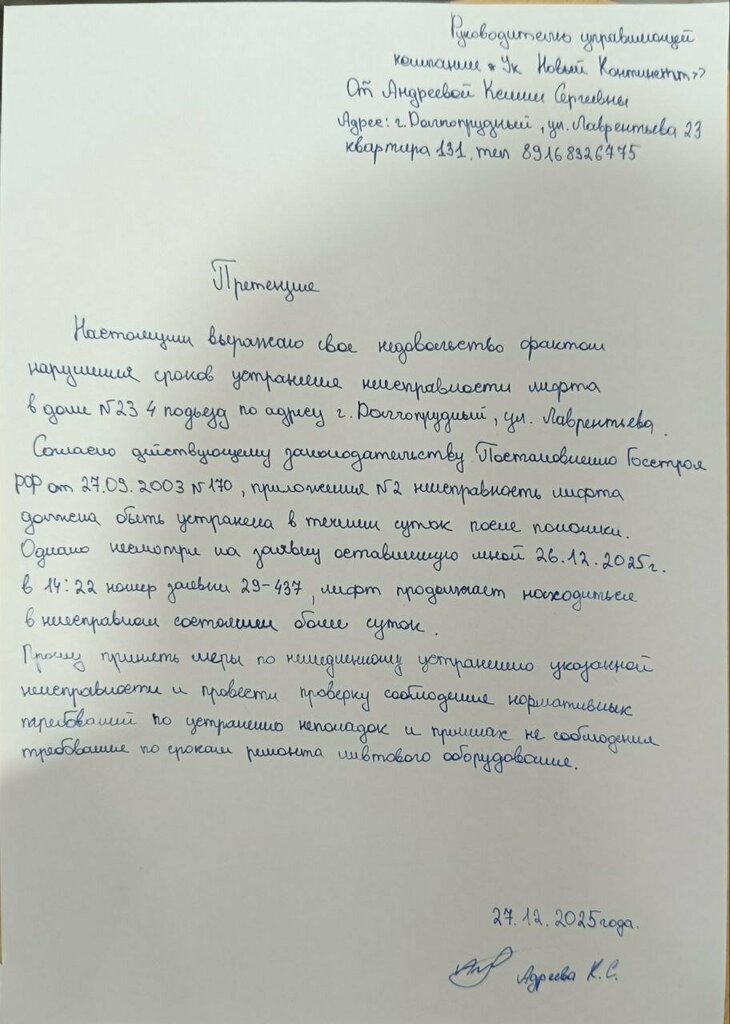 Руководителю управляющей
компании «Ук Новый Континент»
От Андреевой Ксении Сергеевны
Адрес: г. Долгопрудный, ул. Лаврентьева 23
квартира 131. тел 89168326775
Претензия
Настоящим выражаю свое недовольство фактом
нарушения сроков устранения неисправности лифта
в доме №23 4 подъезд по адресу г. Долгопрудный, ул. Лаврентьева.
Согласно действующему законодательству Постановлению Госстроя
РФ от 27.09.2003 №170, приложения №2 неисправность лифта
должена быть устранена в течении суток после поломки.
Однако несмотря на заявку оставленную мной 26.12.2025г.
в 14:22 номер заявки 29-437, лифт продолжает находиться
в неисправном состоянии более суток.
Прошу принять меры по немедленному устранению указанной
неисправности и провести проверку соблюдения нормативных
требований по устранению неполадок и причинах не соблюдения
требования по срокам ремонта лифтового оборудования.
27.12.2025 года.
Адреева К.С.